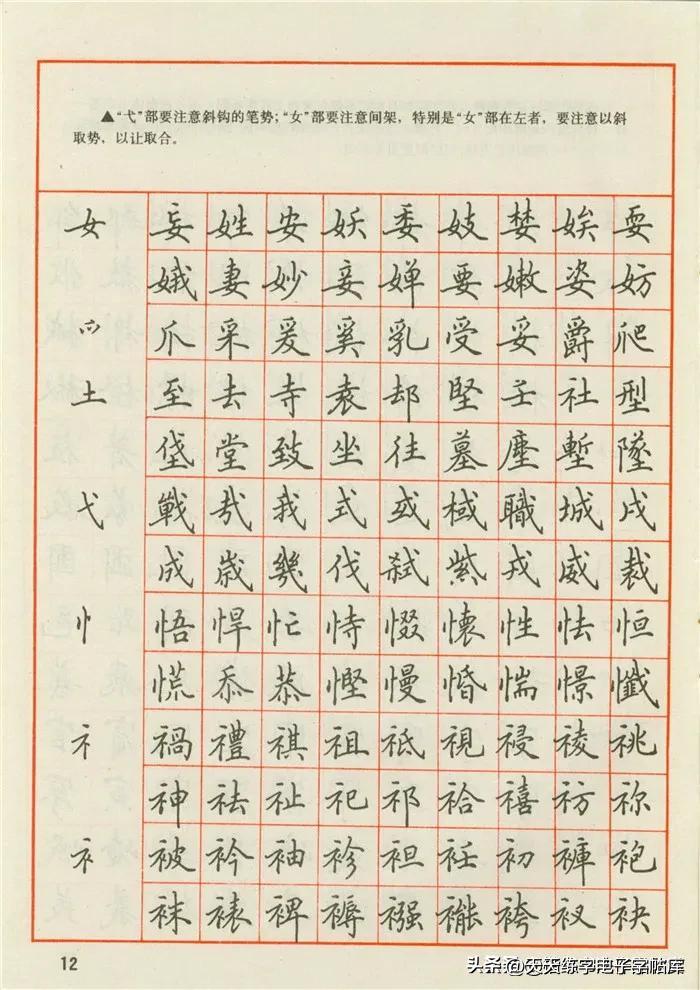 ▲“弋”部要注意斜钩的笔势；“女”部要注意间架，特别是“女”部在左者，要注意以斜
取势，以让取合。
女 妄 姓 安 妖 委 妓 婪 娭 耍
娥 妻 妙 妾 婵 要 嫩 姿 妨
爫 爪 采 爰 奚 乳 受 妥 爵 爬
土 至 去 寺 袁 却 堅 壬 社 型
垡 堂 致 坐 往 墓 塵 塹 墜
弋 戰 哉 我 式 或 棫 職 城 戍
成 歲 幾 伐 弒 紫 戎 威 裁
忄 悟 悍 忙 恃 惙 懷 性 怯 恒
慌 忝 恭 慳 慢 惛 惴 憬 懺
礻 禍 禮 祺 祖 祗 視 祲 祾 祧
神 祛 祉 祀 祁 祫 禧 祊 祢
衤 被 衿 袖 袗 袒 衽 初 褲 袍
袜 裱 裨 褥 襁 褦 袴 衩 袂
12
头条@天天练字电子字帖库